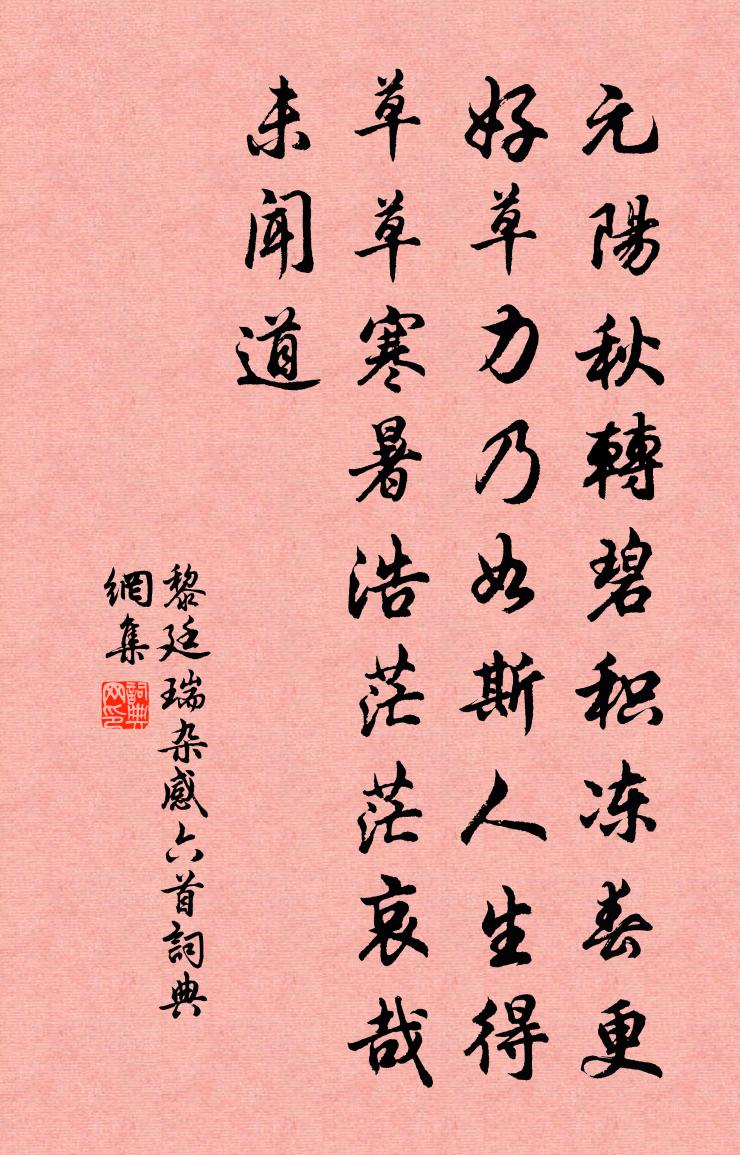 元陽秋轉碧积冻春更
好草力乃如斯人生得
草草寒暑浩茫茫哀哉
未闻道
黎廷瑞杂感六首詞典
網集
詞典
网印